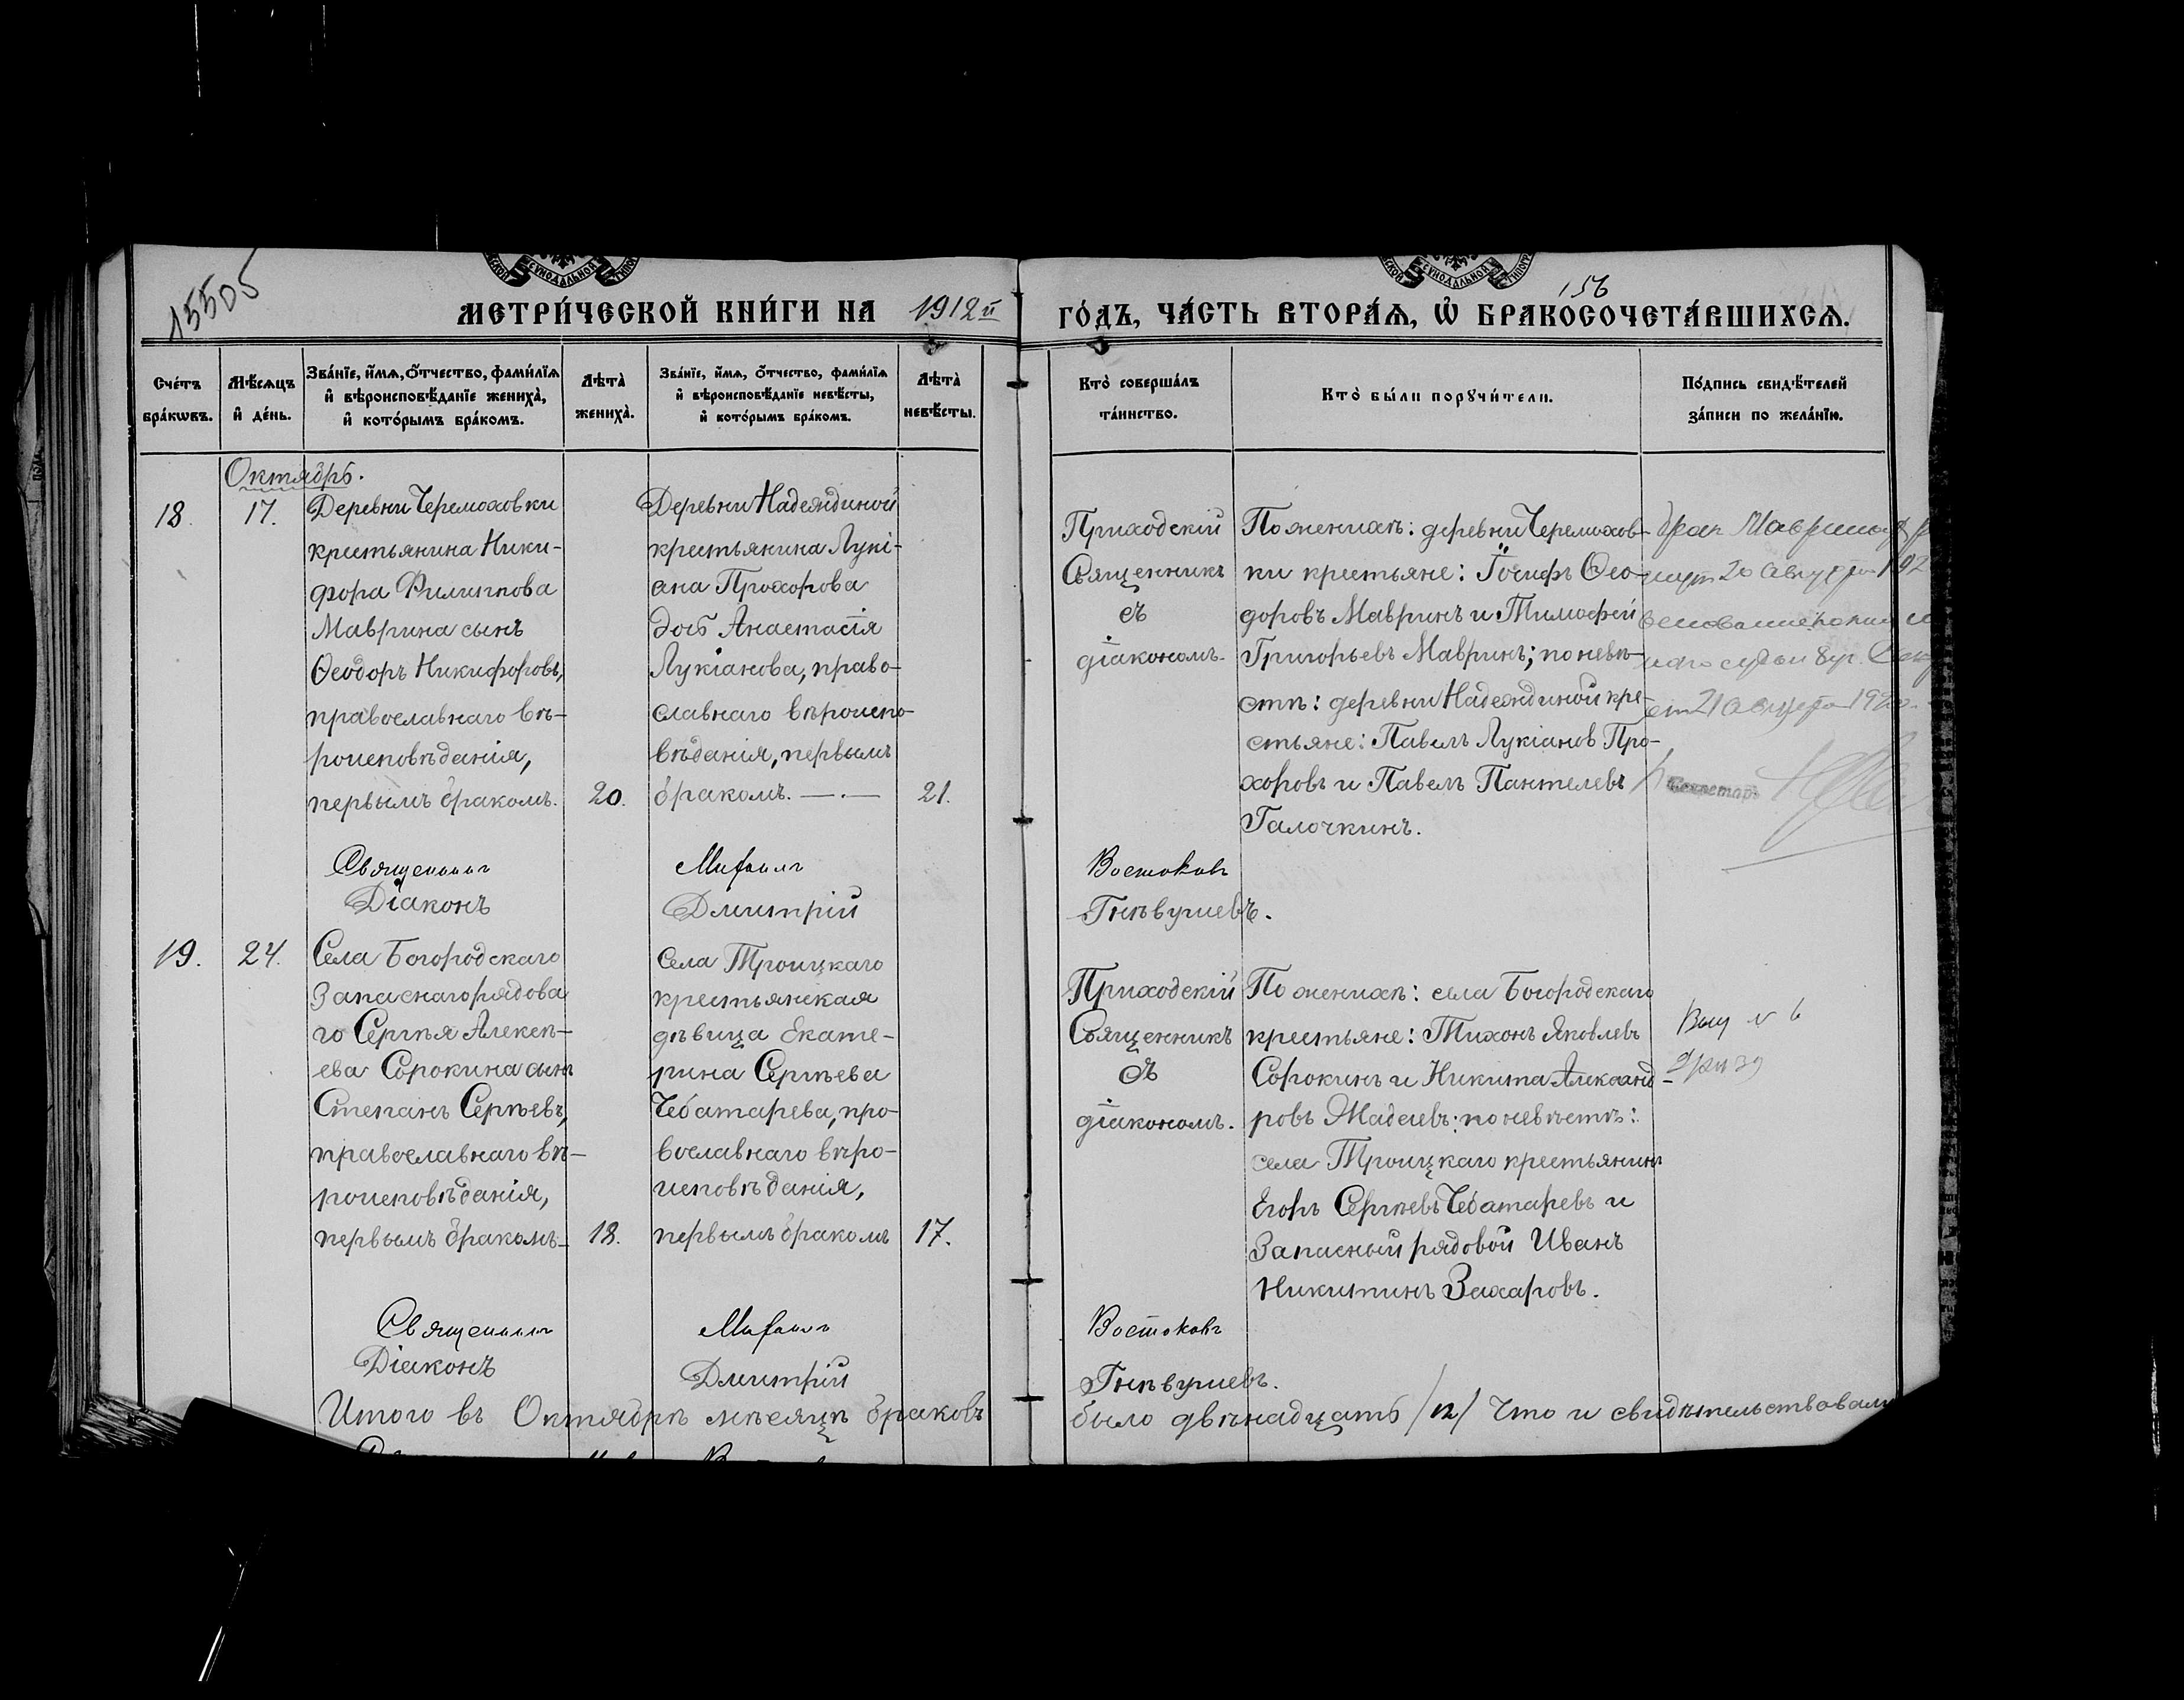 15505
156
МЕТРИ́ЧЕСКОЙ КНИ́ГИ НА 1912й
ГО́ДЪ, ЧА́СТЬ ВТОРА́Ѧ, Ѡ҆ БРАКОСОЧЕТА́ВШИХСѦ.
Сче́тъ
бра́кѡвъ.
Мѣ́сѧцъ
и҆ де́нь.
Зва́нїе, и҆́мѧ, ѻ҆́тчество, фами́лїѧ
и҆ вѣроисповѣ́данїе жениха̀,
и҆ кото́рымъ бра́комъ.
Лѣта̀
жениха̀.
Зва́нїе, и҆́мѧ, ѻ҆́тчество, фами́лїѧ
и҆ вѣроисповѣ́данїе невѣ́сты,
и҆ кото́рымъ бра́комъ.
Лѣта̀
невѣ́сты.
Кто̀ соверша́лъ
та́инство.
Кто̀ бы́ли порꙋчи́тели.
По́дпись свидѣ́телей
за́писи по жела́нїю.
Октябрь.
18.
17.
Деревни Черемоховки
крестьянина Ники-
фора Филиппова
Маврина сынъ
Ѳеодоръ Никифоровъ,
православнаго вѣ-
роисповѣданія,
первымъ бракомъ.
20.
Деревни Надеждиной
крестьянина Лукі-
ана Прохорова
дочь Анастасія
Лукіанова, право-
славнаго вѣроиспо-
вѣданія, первымъ
бракомъ. —·—
21.
Приходскій
Священникъ
съ
діакономъ.
По женихѣ: деревни Черемохов-
ки крестьяне: Іосифъ Ѳео-
доровъ Мавринъ и Тимофей
Григорьевъ Мавринъ; по невѣ-
стѣ: деревни Надеждиной кре-
стьяне: Павелъ Лукіанов Про-
хоровъ и Павелъ Пантелевъ
Галочкинъ.
брак Маврина
20 август 192
21 август 192
Секретарь
Священникъ Михаилъ Востоковъ
Діаконъ Дмитрій Гнѣвушевъ.
19.
24.
Села Богородскаго
Запаснаго рядова
го Сергѣя Алексѣ-
ева Сорокина сынъ
Степанъ Сергѣевъ,
православнаго вѣ-
роисповѣданія,
первымъ бракомъ-
18.
Села Троицкаго
крестьянская
дѣвица Екате-
рина Сергѣева
Чебатарева, пра-
вославнаго вѣро-
исповѣданія,
первымъ бракомъ
17.
Приходскій
Священникъ
съ
діакономъ.
По женихѣ: села Богородскаго
крестьяне: Тихонъ Яковлевъ
Сорокинъ и Никита Александ-
ровъ Жадаевъ; по невѣстѣ:
села Троицкаго крестьянинъ
Егоръ Сергѣевъ Чебатаревъ и
Запасный рядовой Иванъ
Никитинъ Захаровъ.
Священникъ Михаилъ Востоковъ
Діаконъ Дмитрій Гнѣвушевъ.
Итого въ Октябрѣ мѣсяцѣ браковъ было двѣнадцать /12/ Что и свидѣтельствовали